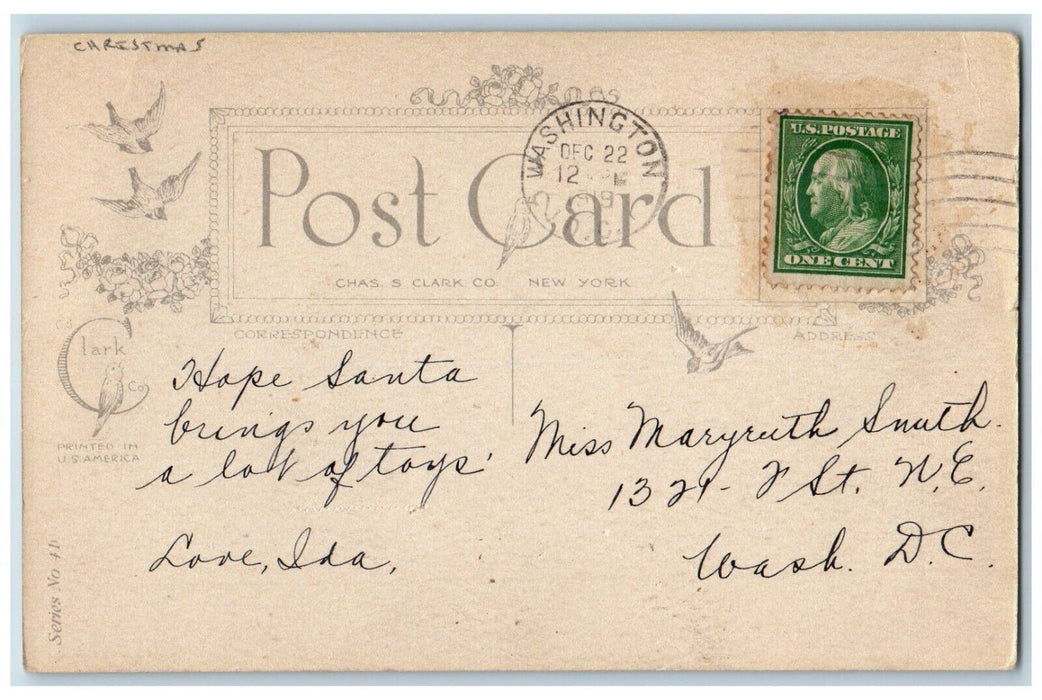 CHRISTMAS
WASHINGTON
DEC 22
12
D.C.
U.S. POSTAGE
ONE CENT
Post Card
CHAS. S CLARK CO. NEW YORK
CORRESPONDENCE
ADDRESS
C.S.
Clark
Co.
PRINTED IN
U.S. AMERICA
Series No 41
Hope Santa
brings you
a lot of toys.
Love, Ida,
Miss Maryruth Smith.
1321- F St. N.E.
Wash. D.C.